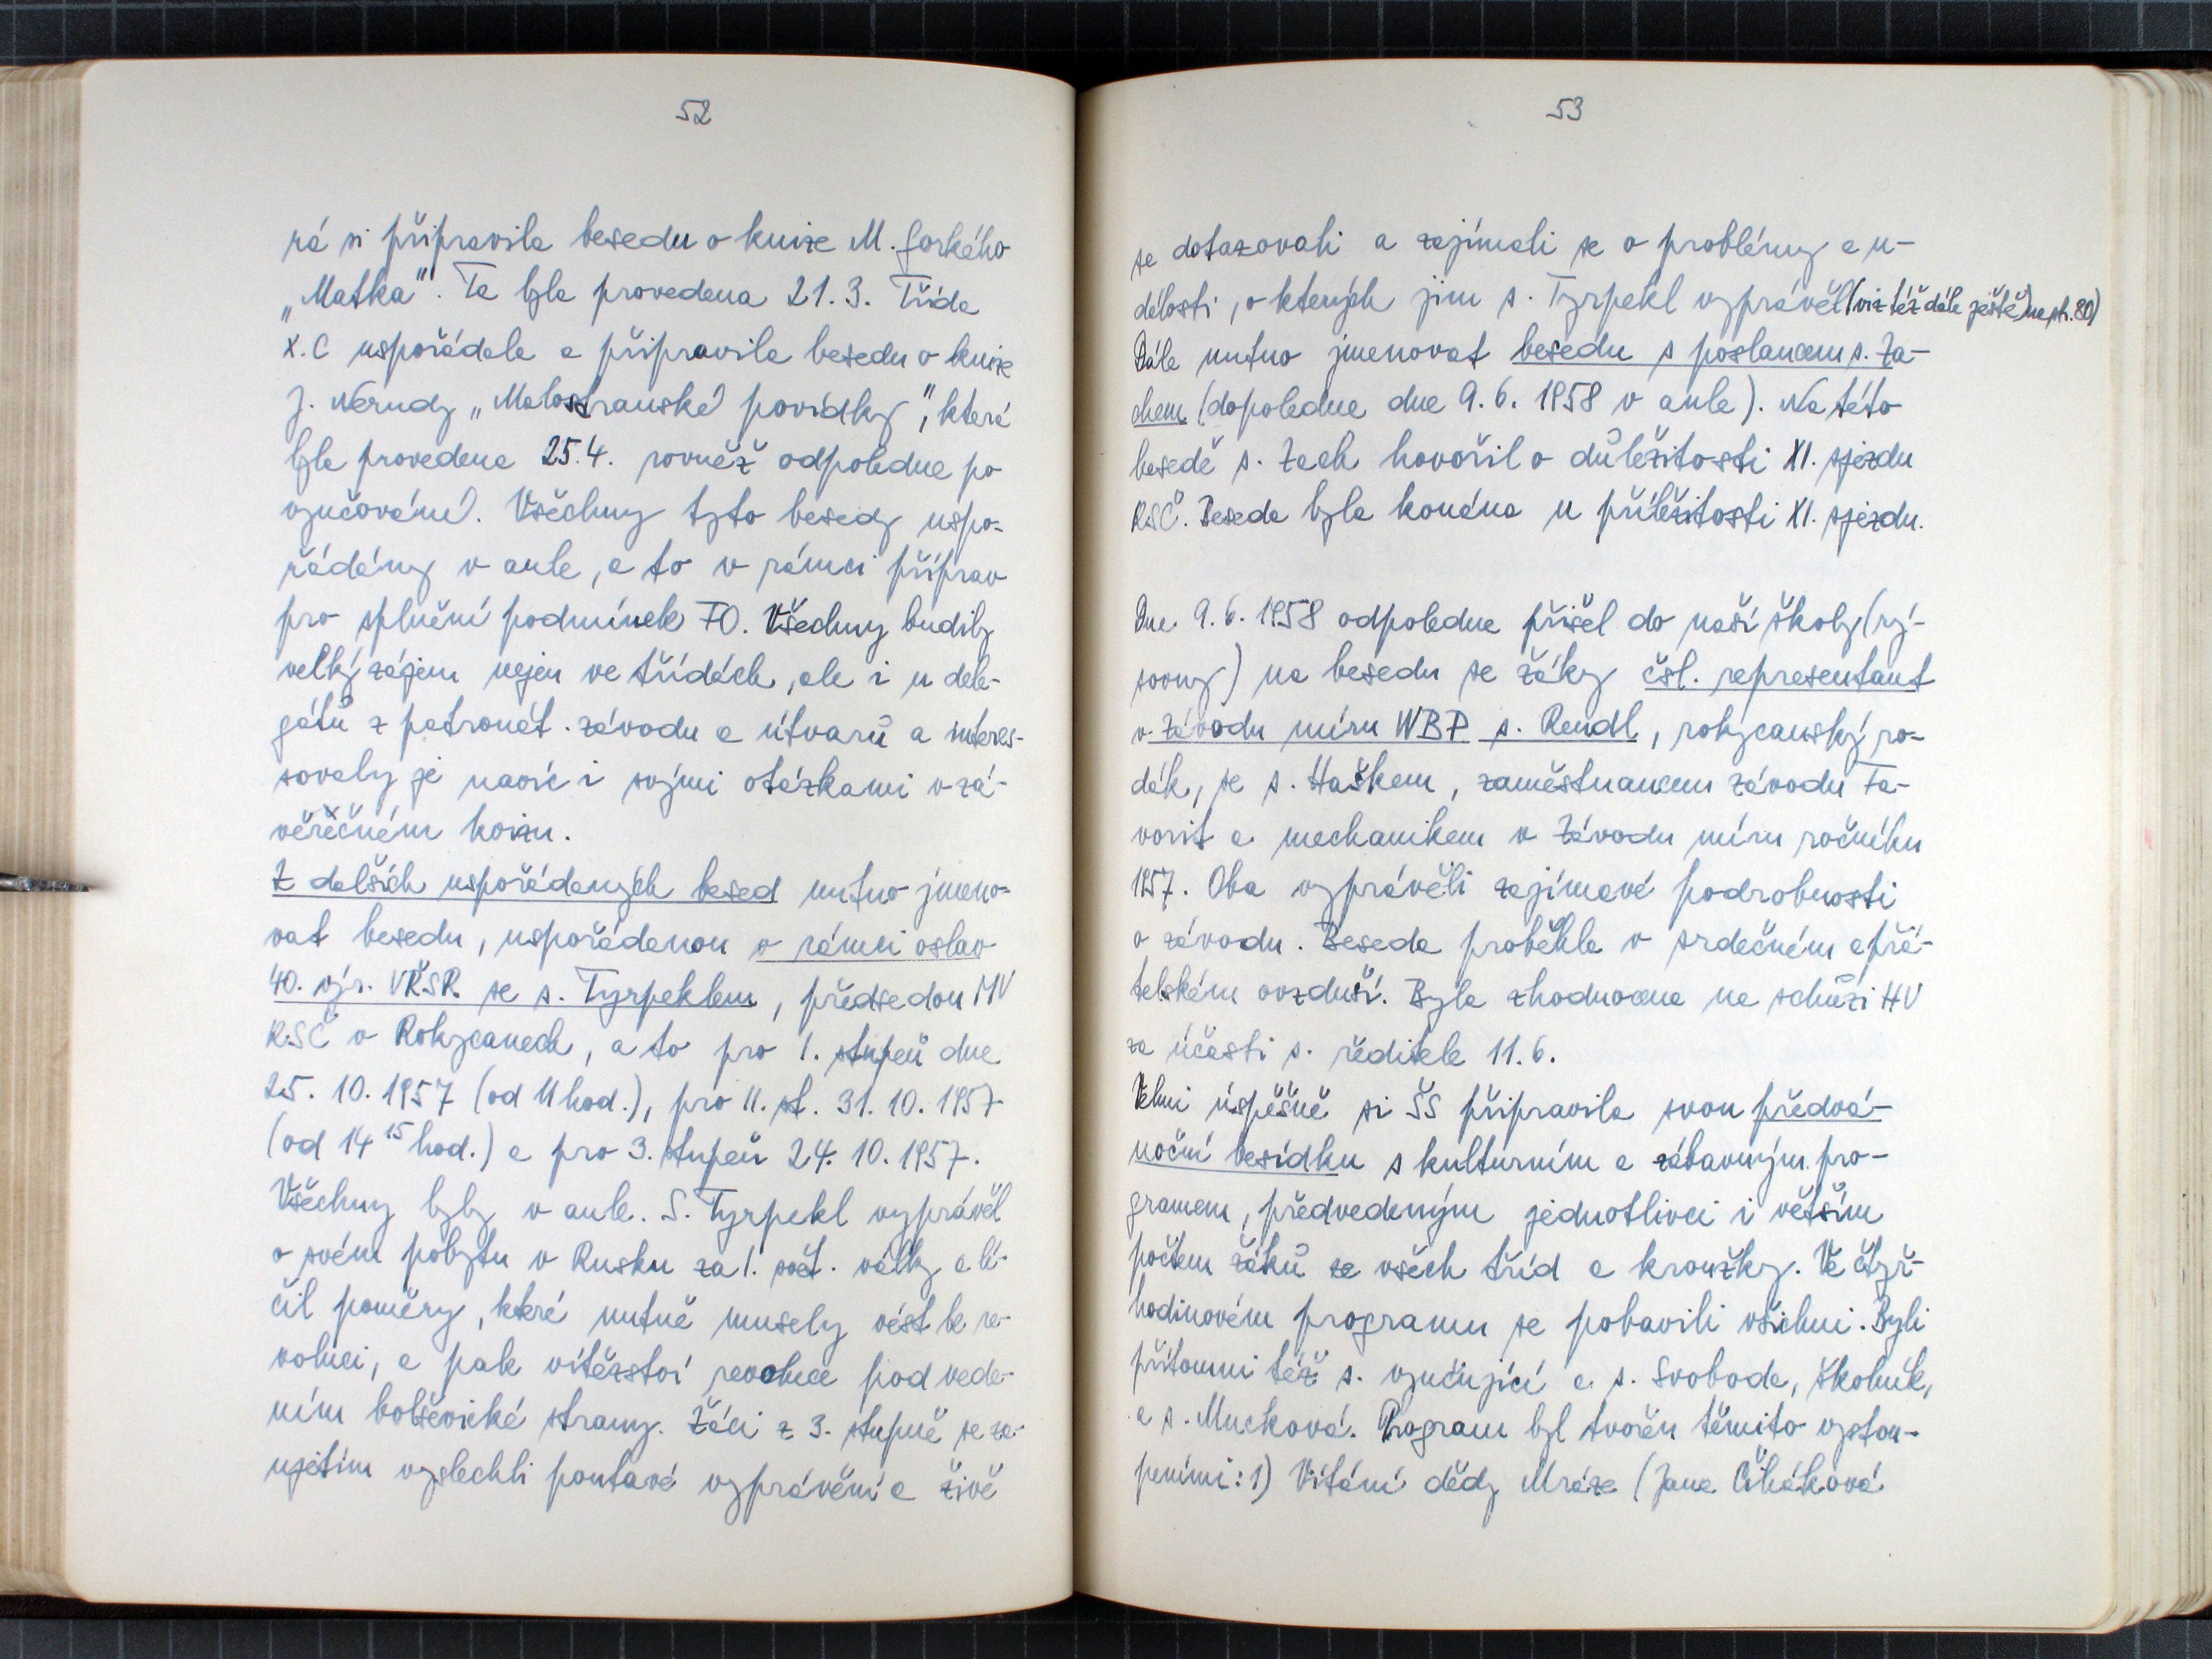 52
rá si připravila besedu o knize M. Gorkého
„Matka". Ta byla provedena 21. 3. Třída
X. C uspořádala a připravila besedu o knize
J. Nerudy „Malostranské povídky", která
byla provedena 25. 4. rovněž odpoledne po
vyučování. Všechny tyto besedy uspo-
řádány v aule, a to v rámci příprav
pro splnění podmínek FO. Všechny budily
velký zájem nejen ve třídách, ale i u dele-
gátů z patronát. závodu a útvarů a interes-
sovaly je navíc i svými otázkami v zá-
věrečném kvizu.
Z dalších uspořádaných besed nutno jmeno-
vat besedu, uspořádanou v rámci oslav
40. výr. VŘSR se s. Tyrpeklem, předsedou MV
KSČ v Rokycanech, a to pro 1. stupeň dne
25. 10. 1957 (od 11 hod.), pro II. st. 31. 10. 1957
(od 14 15 hod.) a pro 3. stupeň 24. 10. 1957.
Všechny byly v aule. S. Tyrpekl vyprávěl
o svém pobytu v Rusku za 1. svět. války a lí-
čil poměry, které nutně musely vést k re-
voluci, a pak vítězství revoluce pod vede-
ním bolševické strany. Žáci z 3. stupně se za-
ujetím vyslechli poutavé vyprávění a živě
53
se dotazovali a zajímali se o problémy a u-
dálosti, o kterých jim s. Tyrpekl vyprávěl (viz též dále ještě) na str. 80)
Dále nutno jmenovat besedu s poslancem s. Za-
chem (dopoledne dne 9. 6. 1958 v aule). Na této
besedě s. Zach hovořil o důležitosti XI. sjezdu
KSČ. Beseda byla konána u příležitosti XI. sjezdu.
Dne 9. 6. 1958 odpoledne přišel do naší školy (rý-
sovny) na besedu se žáky čsl. representant
v Závodu míru WBP s. Rendl, rokycanský ro-
dák, se s. Haškem, zaměstnancem závodu Fa-
vorit a mechanikem v Závodu míru ročníku
1957. Oba vyprávěli zajímavé podrobnosti
o závodu. Beseda proběhla v srdečném a přá-
telském ovzduší. Byla zhodnocena na schůzi HV
za účasti s. ředitele 11. 6.
Velmi úspěšně si ŠS připravila svou předvá-
noční besídku s kulturním a zábavným pro-
gramem, předvedeným jednotlivci i větším
počtem žáků ze všech tříd a kroužky. Ve čtyř-
hodinovém programu se pobavili všichni. Byli
přítomni též s. vyučující a s. Svoboda, školník,
a s. Mucková. Program byl tvořen těmito vystou-
peními: 1) Vítání dědy Mráze (Jana Čiháková